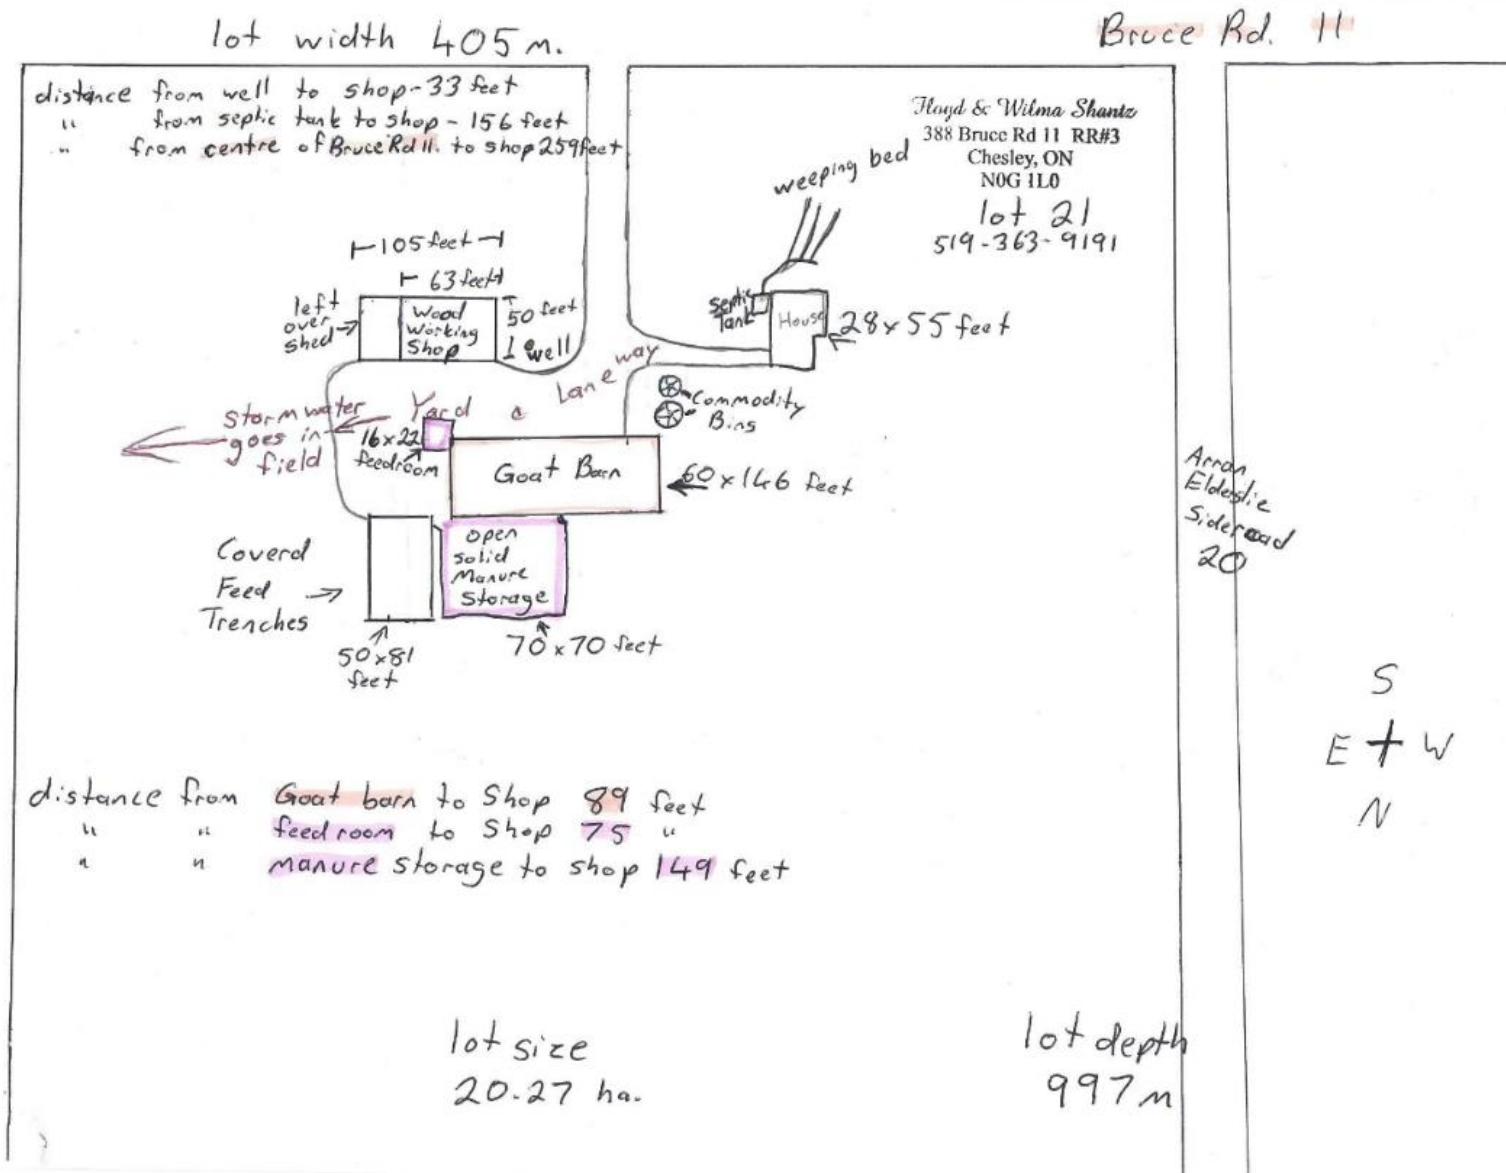 lot width 405m.
Bruce Rd. 11
distance from well to shop - 33 feet
" from septic tank to shop - 156 feet
" from centre of Bruce Rd 11. to shop 259 feet
Floyd & Wilma Shantz
388 Bruce Rd 11 RR#3
Chesley, ON
N0G 1L0
lot 21
519-363-9191
weeping bed
105 feet
63 feet
left
over
shed
Wood
Working
Shop
50 feet
well
Septic
Tank
House
28 x 55 feet
Lane way
Commodity
Bins
Storm water
goes in
field
Yard
16 x 22
feedroom
Goat Barn
60 x 146 feet
Arran
Elderslie
Sideroad
20
Coverd
Feed
Trenches
open
Solid
Manure
Storage
50 x 81
feet
70 x 70 feet
S
E W
N
distance from Goat barn to Shop 89 feet
" " feed room to Shop 75 "
" " manure storage to shop 149 feet
lot size
20.27 ha.
lot depth
997 m